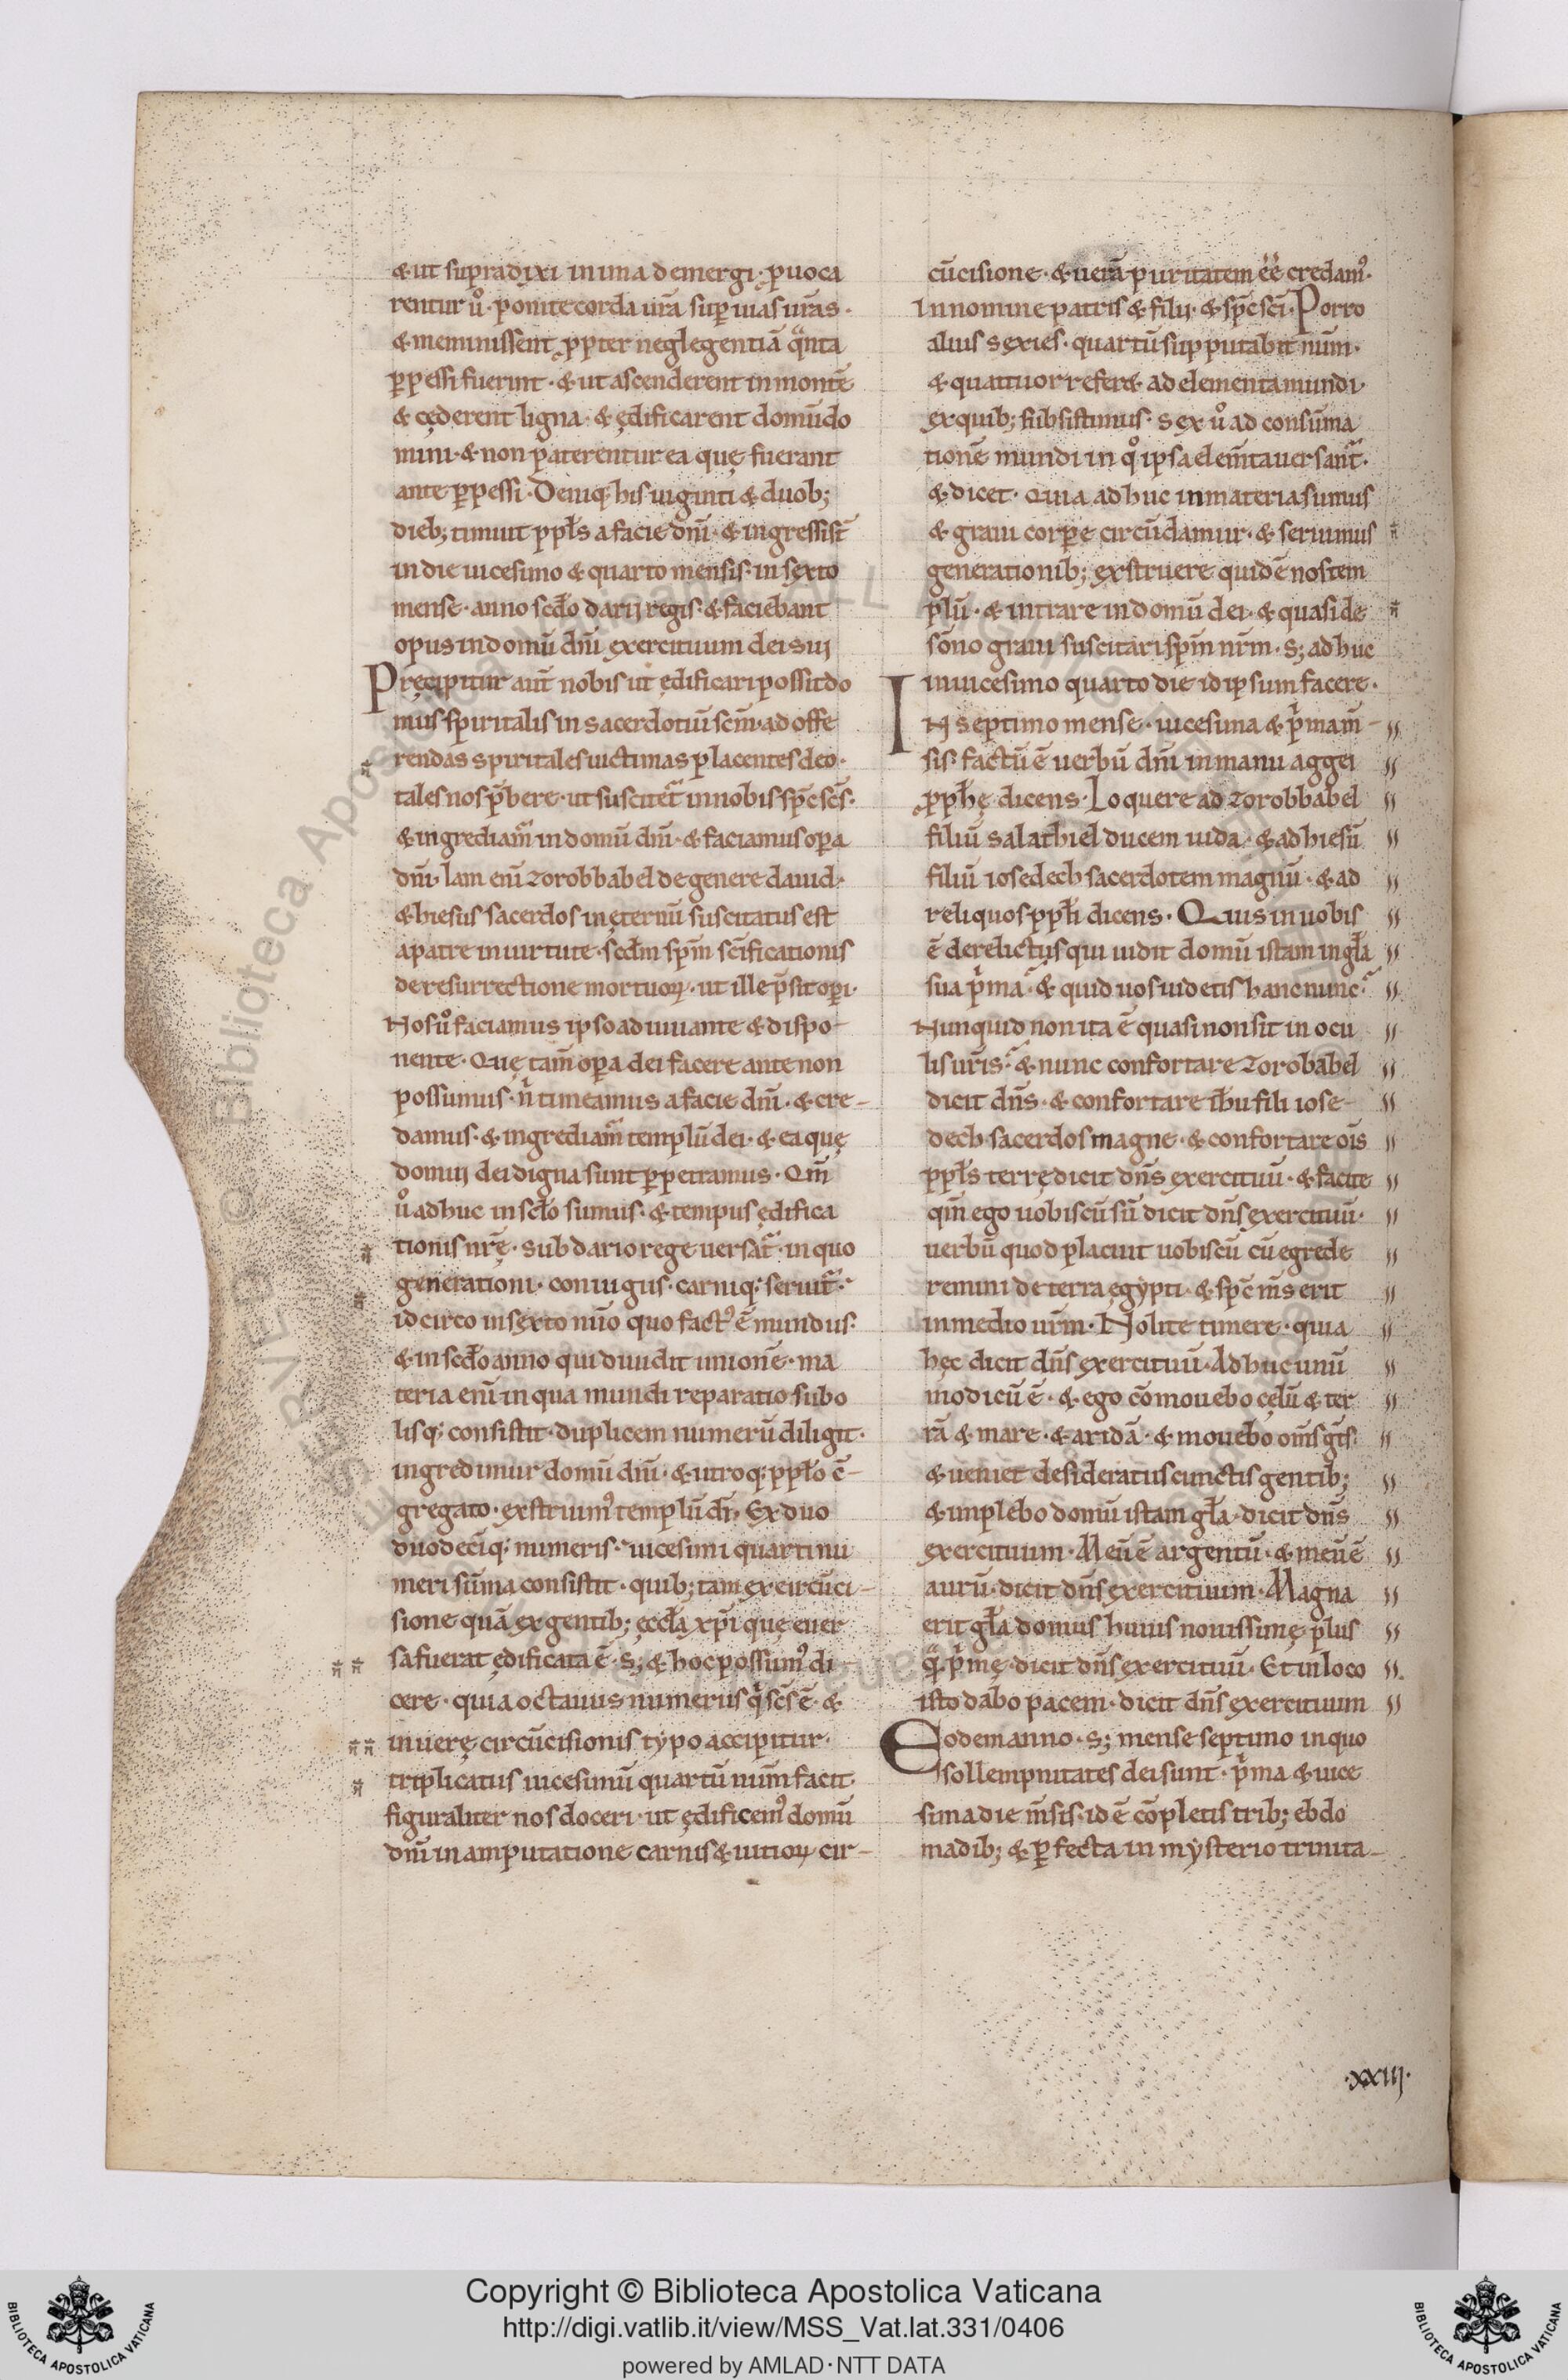 & ut supradixi in ima demergi· ꝓuoca
rentur ů· ponite corda ur̄a suꝑ uias ur̄as·
& meminissent ꝓpter neglegentiā qͣnta
ꝑpessi fuerint· & ut ascenderent in montē
& cęderent ligna· & ędificarent domū do
mini· & non paterentur ea quę fuerant
ante ꝑpessi· Deniq; his uiginti & duob;
dieb; timuit ppl̄s a facie dn̄i· & ingressi sт̄
in die uicesimo & quarto mensis· in sexto
mense· anno scd̄o darij regis· & faciebant
opus in domū dn̄i exercituum dei sui
Pręcipitur aut̄ nobis ut ędificari possit do
mus spiritalis in sacerdotiū scm̄· ad offe
rendas spiritales uictimas placentes deo·
tales nos p̄bere· ut suscitet᷑ in nobis sp̄c sc̄s·
& ingrediam᷑ in domū dn̄i· & faciamus oꝑa
dn̄i· Iam eni᷑ zorobbabel de genere dauid·
& hiesus sacerdos in ęternū suscitatus est
a patre in uirtute· scd̄m sp̄m sc̄ificationis
de resurrectione mortuoꝝ· ut ille p̄sit oꝑi·
Nos ů faciamus ipso adiuuante & dispo-
nente· Quę tam̄ oꝑa dei facere ante non
possumus· nͥ timeamus a facie dn̄i· & cre-
damus· & ingrediam᷑ templū dei· & ea quę
domui dei digna sunt ꝑpetramus· Qm̄
ů adhuc in scl̄o sumus· & tempus ędifica
tionis nr̄ę· sub dario rege uersat᷑· in quo
generationi· coniugiis· carniq; seruit᷑·
idcirco in sexto nūo quo factꝰ ē mundus·
& in scd̄o anno qui diuidit unionē· ma
teria eni᷑ in qua mundi reparatio subo
lisq; consistit· duplicem numerū diligit·
ingredimur domū dn̄i· & utroq; ppl̄o c̄-
gregato· exstruimꝰ templū dn̄i· Ex duo
duodeciq; numeris· uicesimi quarti nu
meri sūma consistit· quib; tam ex circūci-
sione quā ex gentib; ęccl̄a xp̄i quę euer
sa fuerat ędificata ē· S; & hoc possumꝰ di-
cere· quia octauus numerus qͥ sc̄s ē· &
in uerę circūcisionis typo accipitur·
triplicatus uicesimū quartū num̄ facit·
figuraliter nos doceri· ut ędificemꝰ domū
dn̄i in amputatione carnis & uitioꝝ cir-
cūcisione· & uerā puritatem ee̅ credamꝰ·
In nomine patris & filii· & sp̄c sc̄i· Porro
alius sexies· quartū supputabit num̄·
& quattuor refer& ad elementa mundi·
ex quib; subsistimus· Sex ů ad consūma
tionē mundi in qͦ ipsa elem̄ta uersant᷑·
& dicet· Quia adhuc in materia sumus
& graui corpore circūdamur· & seruimus
generationib; exstruere quidē nos tem
plū· & intrare in domū dei· & quasi de
sōno graui suscitari sp̄m nr̄m· S; adhuc
in uicesimo quarto die id ipsum facere·
In septimo mense· uicesima & pͥma m̄-
sis· factū ē uerbū dn̄i in manu aggei
ꝓph̄ę dicens· Loquere ad zorobbabel
filiū salathiel ducem iuda· & ad hiesū
filiū iosedech sacerdotem magnū· & ad
reliquos ppl̄i dicens· Quis in uobis
ē derelictus qui uidit domū istam in gl̄a
sua pͥma· & quid uos uidetis hanc nunc·
Nunquid non ita ē quasi non sit in ocu
lis ur̄is· & nunc confortare zorobabel
dicit dn̄s· & confortare ih̄u fili iose-
dech sacerdos magne· & confortare oīs
ppl̄s terrę dicit dn̄s exercituū· & facite
qm̄ ego uobiscū sū dicit dn̄s exercituū·
uerbū quod placuit uobiscū cū egrede
remini de terra egypti· & sp̄c m̄s erit
in medio ur̄m· Nolite timere· quia
hęc dicit dn̄s exercituū· Adhuc unū
modicū ē· & ego cōmouebo cęlū & ter
rā & mare· & aridā· & mouebo om̄s gt̄s·
& ueniet desideratus cunctis gentib;
& implebo domū istam gl̄a· dicit dn̄s
exercituum· Meū ē argentū· & meū ē
aurū· dicit dn̄s exercituum· Magna
erit gl̄a domus huius nouissimę plus
qͣ pͥmę· dicit dn̄s exercituū· Et in loco
isto dabo pacem· dicit dn̄s exercituum
Eodem anno· S; mense septimo in quo
sollempnitates dei sunt· pͥma & uice
sima die m̄sis· id ē cōpletis trib; ebdo
madib; & ꝑfecta in mysterio trinita-
·xxiij·
Copyright © Biblioteca Apostolica Vaticana
http://digi.vatlib.it/view/MSS_Vat.lat.331/0406
powered by AMLAD·NTT DATA
BIBLIOTECA APOSTOLICA VATICANA
BIBLIOTECA APOSTOLICA VATICANA